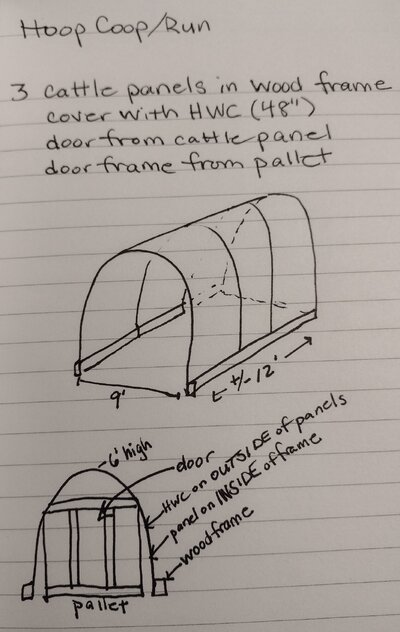 Hoop Coop/Run
3 cattle panels in wood frame
cover with HWC (48")
door from cattle panel
door frame from pallet
9'
+/- 12'
~6' high
door
HWC on OUTSIDE of panels
panel on INSIDE of frame
wood frame
pallet